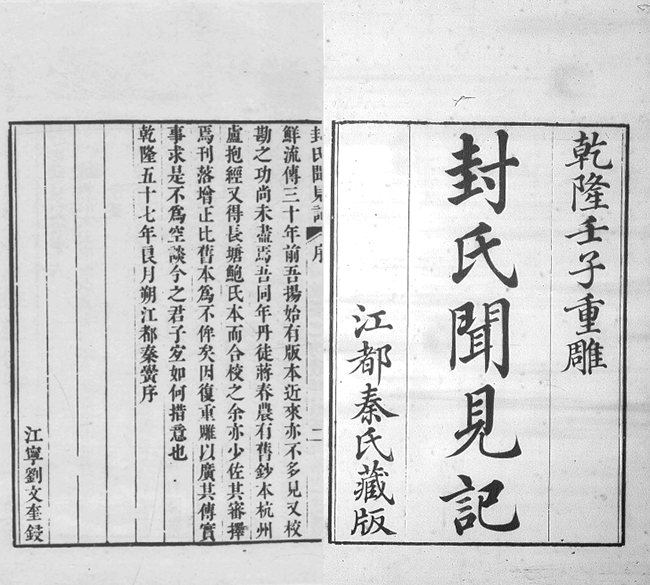 乾隆壬子重雕
封氏聞見記
江都秦氏藏版
封氏聞見記 序 二
鮮流傳三十年前吾揚始有版本近來亦不多見又校
勘之功尚未盡焉吾同年丹徒蔣春農有舊鈔本杭州
盧抱經又得長塘鮑氏本而合校之余亦少佐其審擇
焉刊落增正比舊本爲不侔矣因復重雕以廣其傳實
事求是不爲空談今之君子如何措意也
乾隆五十七年良月朔江都秦黌序
江寧劉文奎鋟